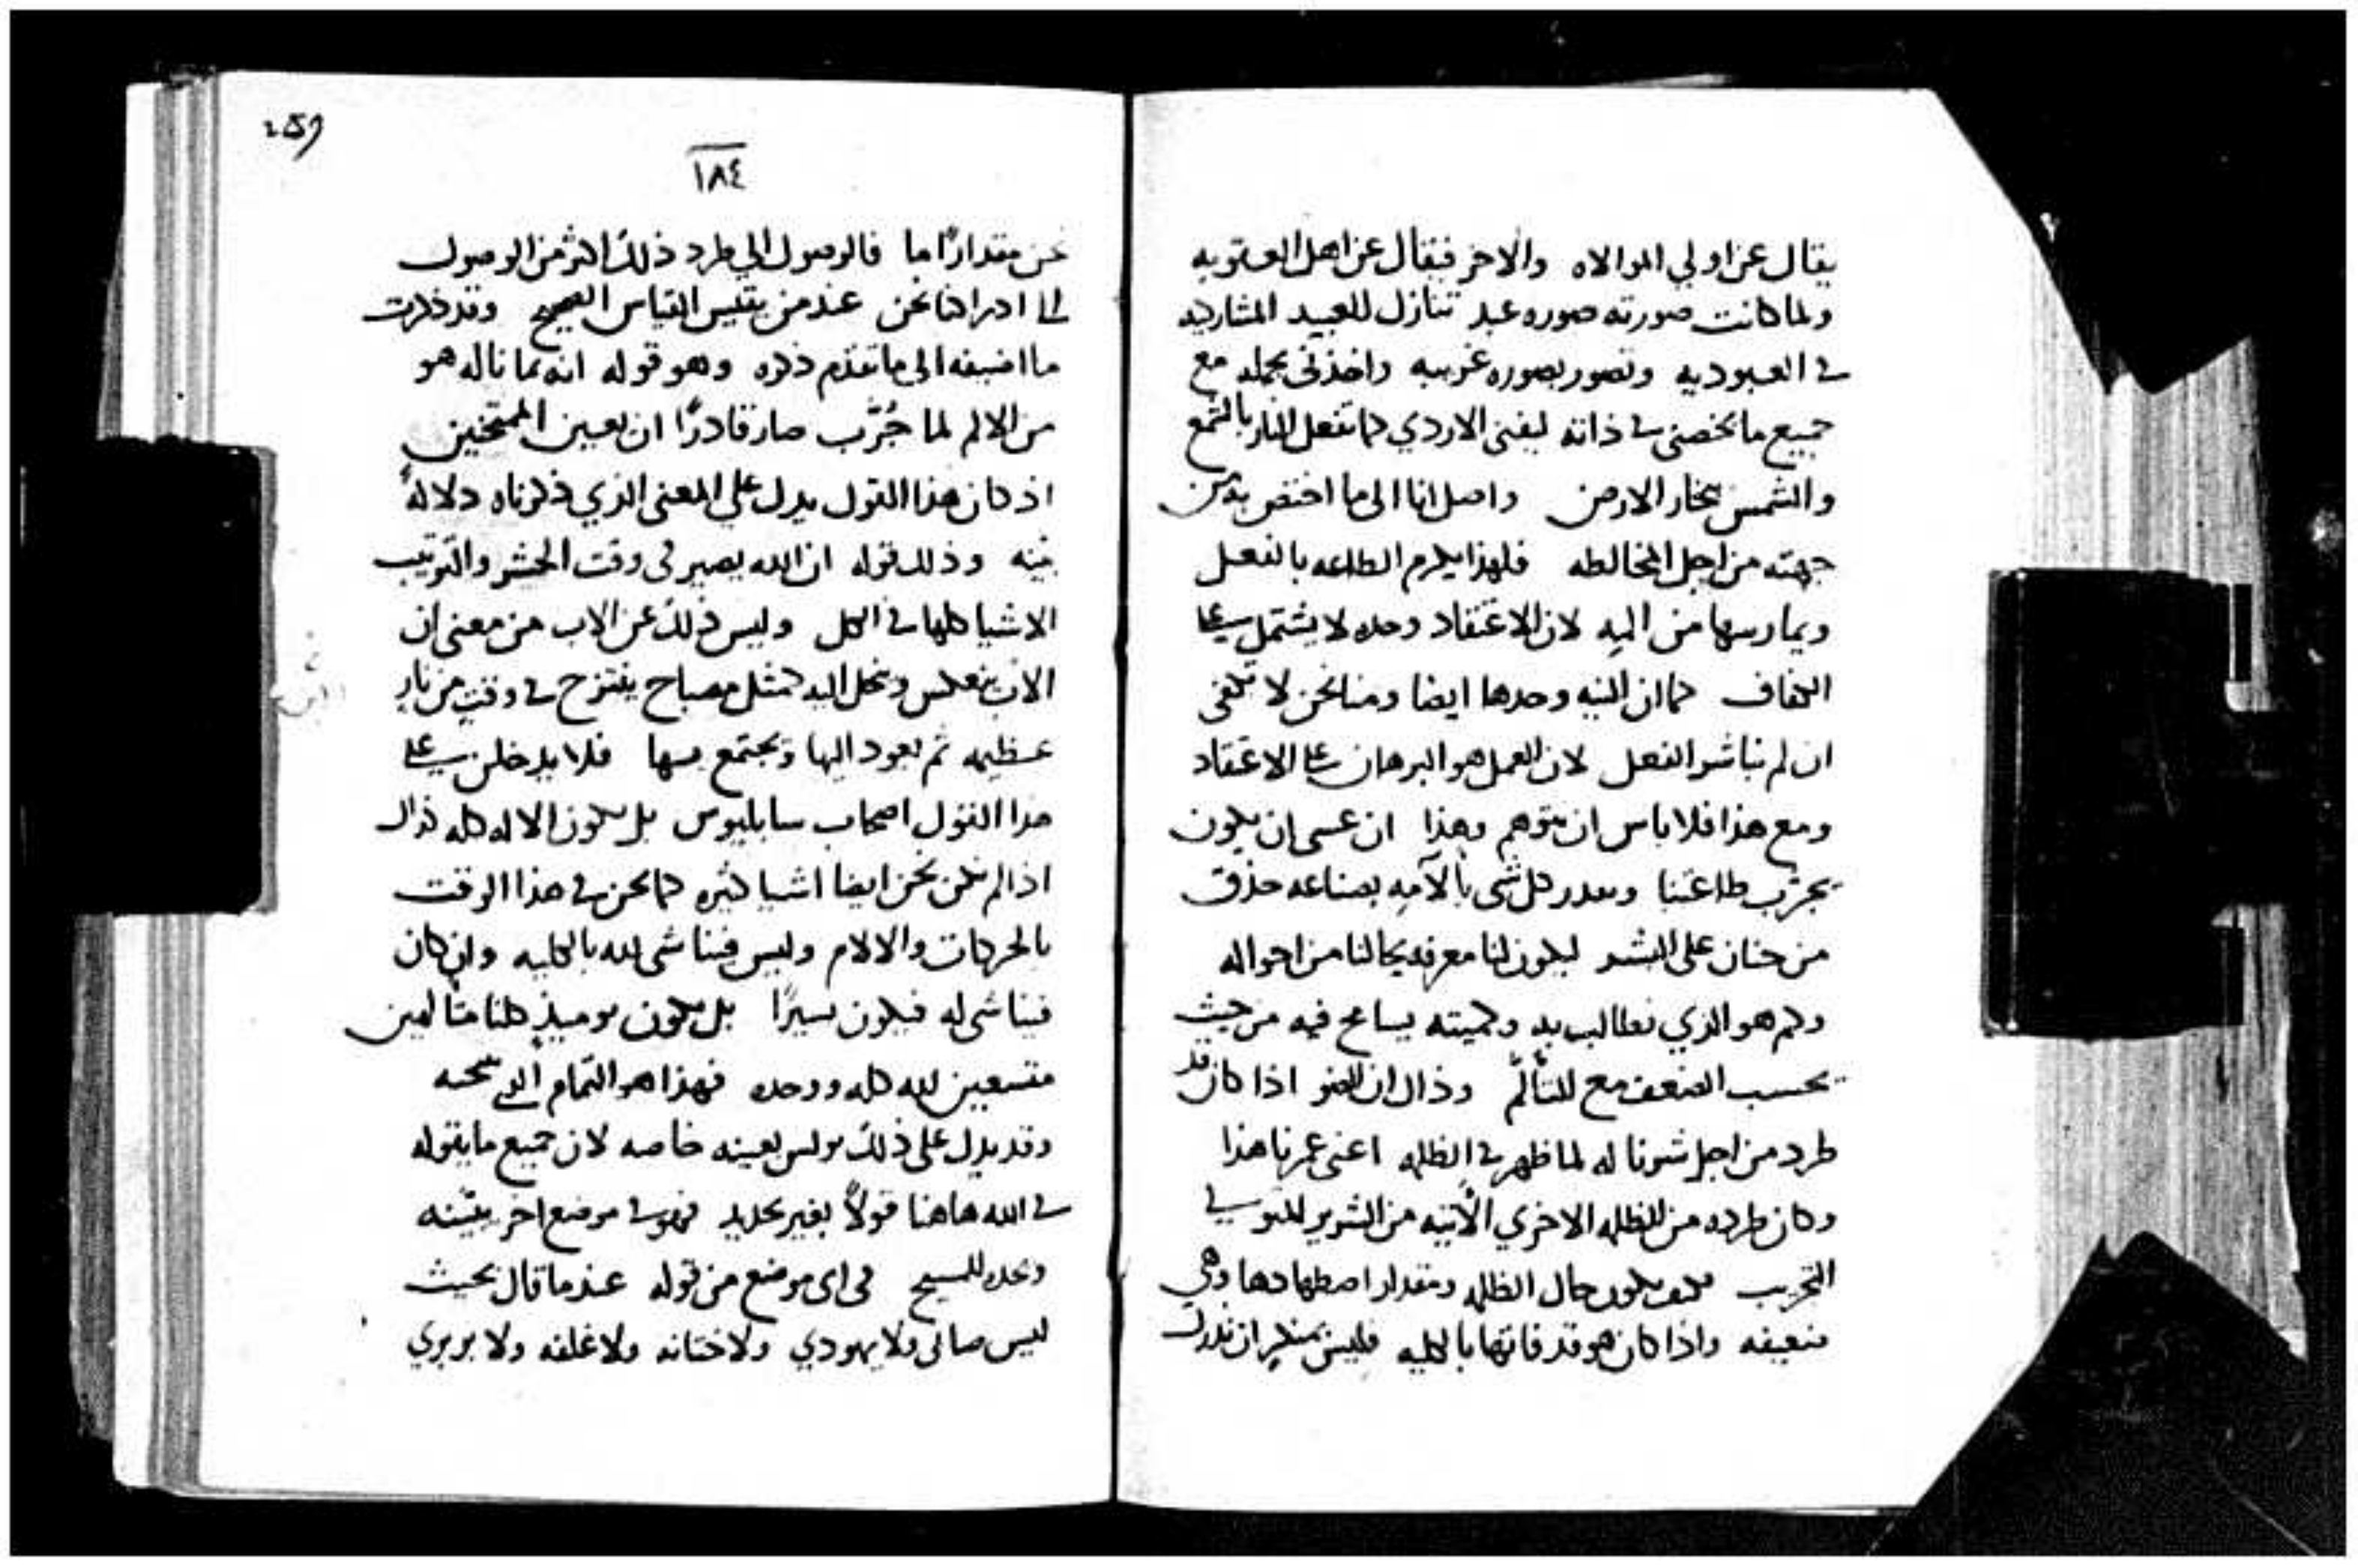 يقال عن اولي الموالاه والاخر فيقال عن اهل العبوديه
ولما كانت صورته صوره عبد تنازل للعبيد المشاركيه
في العبوديه وتصور بصوره غريبه واخذني بجملد مع
جميع ما يخصني في ذاته ليفني الاردي كما تفعل النار بالشمع
والشمس بخار الارض واصل انا الى ما اختص به من
جهته من اجل المخالطه فلهذا يكرم الطاعه بالفعل
ويمارسها من الم لان الاعتقاد وحده لا يشتمل على
الكفاف كما ان النيه وحدها ايضا ومنا نحن لا تكفي
ان لم نباشر الفعل لان العمل هو البرهان على الاعتقاد
ومع هذا فلا باس ان نتوهم وهذا ان عسى ان يكون
يجرب طاعتنا ويقدر كل شي بالآمه بصناعه حذق
من حنان على البشر ليكون لنا معرفه بحالنا من احواله
وكم هو الذي نطالب به وكميته يسامح فيه من حيث
يحسب الضعف مع التألّم وذاك ان الضو اذا كان قد
طرد من اجل سترنا له لما ظهر في الظلمه اعني عمرنا هذا
وكان طرده من الظلمه الاخري الآتيه من الشرير
التجريب فكيف يكون حال الظلمه ومقدار اضطهادها وهي
ضعيفه واذا كان هو قد فاتها بالكليه فليس بمنكر ان ندرك
259
١٨٤
نحن مقدارًا ما فالوصول الي طرد ذلك اكثر من الوصول
الى ادراكنا نحن عند من يقيس القياس الصحيح وقد ذكرت
ما اضيفه الى ما تقدم ذكره وهو قوله انه بما ناله هو
من الالم لما جُرّب صار قادرًا ان يعين الممتحنين
اذ كان هذا القول يدل على المعنى الذي ذكرناه دلالةً
بينه وذلك قوله ان الله يصير في وقت الحشر والترتيب
الاشيا كلها في الكل وليس ذلك عن الاب من معنى ان
الابن ينعكس وينحل اليه كمثل مصباح ينتزح في وقتٍ من نارٍ
عظيمه ثم يعود اليها ويجتمع بها فلا يدخلن على
هذا القول اصحاب سابليوس بل يكون الاله كله ذاك
اذا لم نكن نحن ايضا اشيا كثيره كما نحن في هذا الوقت
بالحركات والالام وليس فينا شى لله بالكليه وان كان
فينا شى له فيكون يسيرًا بل نكون يوميذٍ كلنا متالهين
متسعين لله كله ووحده فهذا هو التمام الذي
وقد يدل على ذلك بولس بعينه خاصه لان جميع ما يقوله
في الله هاهنا قولاً بغير تحديد فهو في موضع اخر يبيّنه
ويحده للمسيح في اى موضع من قوله عندما قال بحيث
ليس صابى ولا يهودي ولا ختانه ولا غلفه ولا بربري